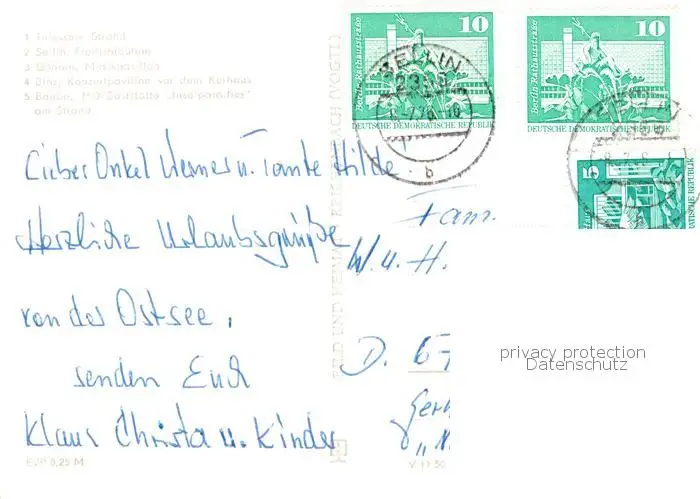 1 Strand
2 Sellin, Freilichtbühne
3 Göhren, Musikpavillon
4 Binz, Konzertpavillon vor dem Kurhaus
5 Baabe, HO-Gaststätte „Inselparadies"
am Strand
Lieber Onkel Werner u. Tante Hilde
Herzliche Urlaubsgrüße
von der Ostsee,
senden Euch
Klaus Christa u. Kinder
EVP 0,25 M
BILD UND HEIMAT REICHENBACH (VOGTL)
V 11 50
10
Berlin-Rathausstraße
DEUTSCHE DEMOKRATISCHE REPUBLIK
10
Berlin-Rathausstraße
DEUTSCHE DEMOKRATISCHE REPUBLIK
5
REPUBLIK
b
Fam.
W. u. H.
D.
privacy protection
Datenschutz